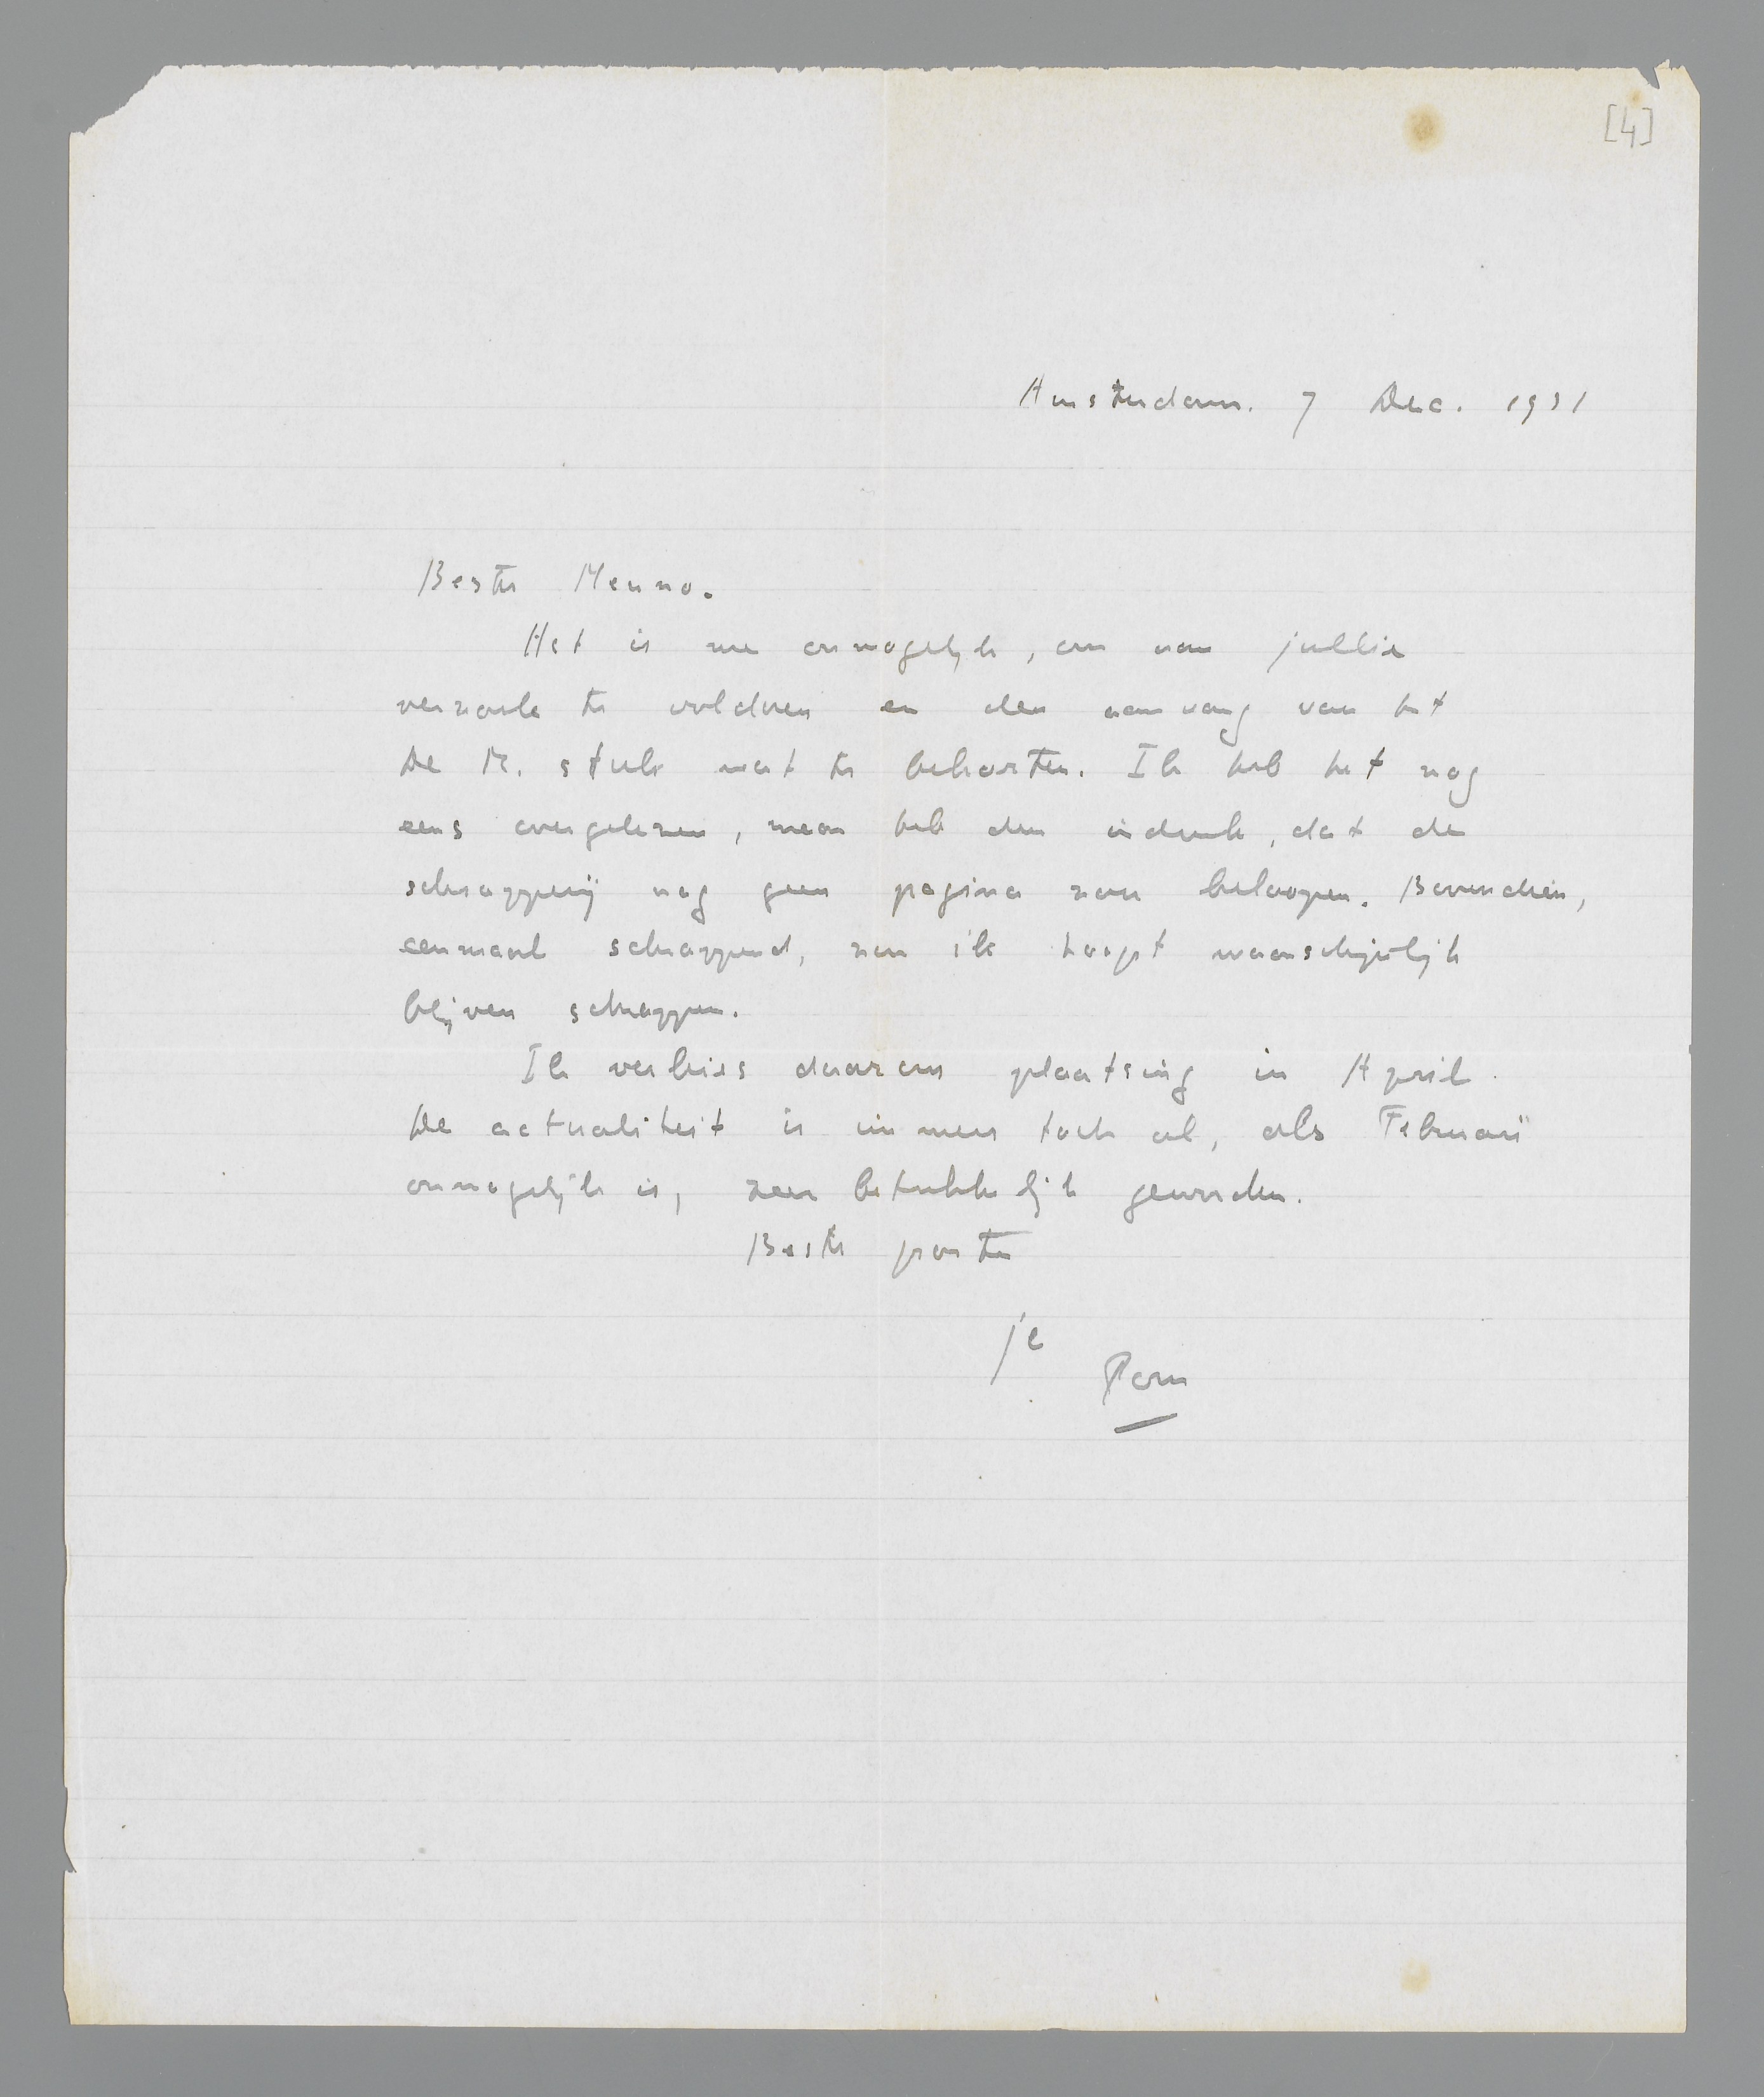 [4]
Amsterdam. 7 Dec. 1931
Beste Menno.
Het is me onmogelijk, om aan jullie
verzoek te voldoen en den aanvang van het
De M. stuk wat te bekorten. Ik heb het nog
eens overgelezen, maar heb den indruk, dat de
schrapperij nog geen pagina zou beloopen. Bovendien,
eenmaal schrappend, zou ik hoogst waarschijnlijk
blijven schrappen.
Ik verkies daarom plaatsing in April.
De actualiteit is immers toch al, als Februari
onmogelijk is, zeer betrekkelijk geworden.
Beste groeten
je